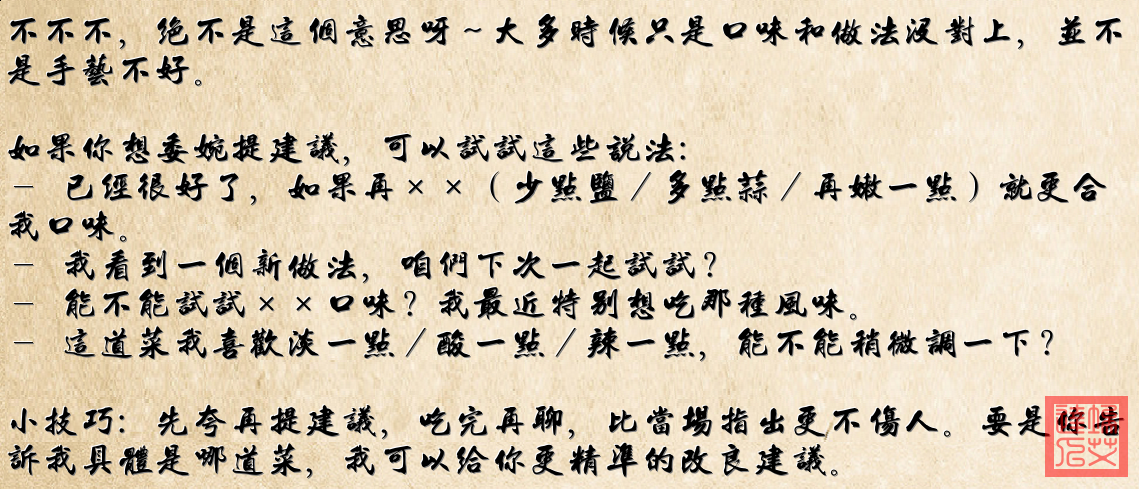 不不不，絕不是這個意思呀～大多時候只是口味和做法沒對上，並不
是手藝不好。
如果你想委婉提建議，可以試試這些說法：
－ 已經很好了，如果再××（少點鹽／多點蒜／再嫩一點）就更合
我口味。
－ 我看到一個新做法，咱們下次一起試試？
－ 能不能試試××口味？我最近特別想吃那種風味。
－ 這道菜我喜歡淡一點／酸一點／辣一點，能不能稍微調一下？
小技巧：先夸再提建議，吃完再聊，比當場指出更不傷人。要是你告
訴我具體是哪道菜，我可以給你更精準的改良建議。